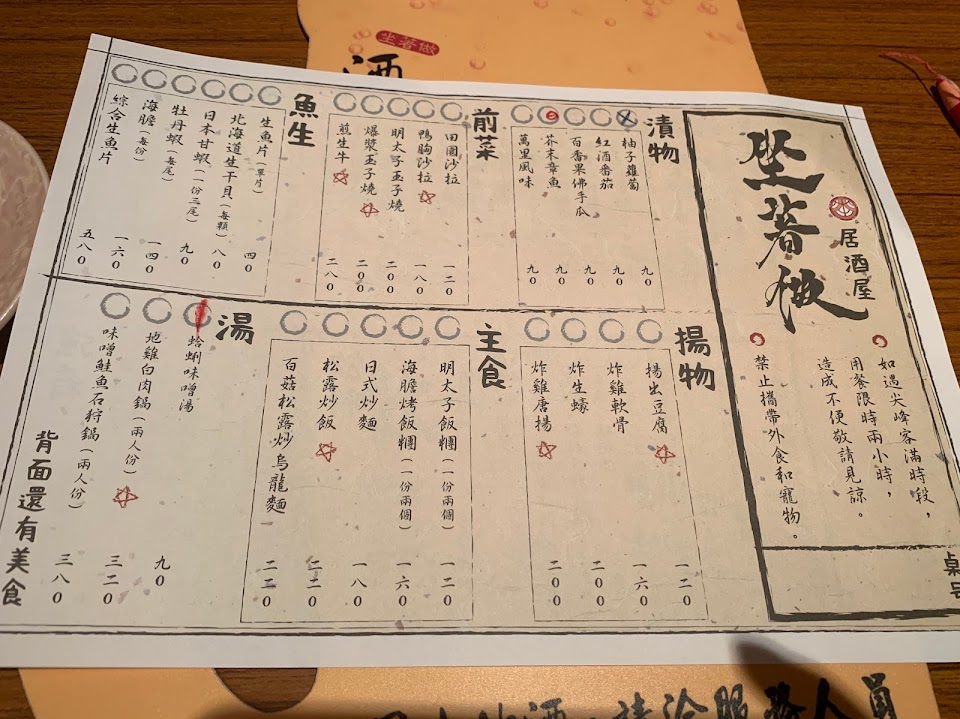 坐著做
酒
坐著做
居酒屋
如遇尖峰客滿時段，
用餐限時兩小時，
造成不便敬請見諒。
禁止攜帶外食和寵物。
桌号
漬物
柚子蘿蔔 九0
紅酒番茄 九0
百香果佛手瓜 九0
芥末章魚 九0
萬里風味 九0
前菜
田園沙拉 一二0
鴨胸沙拉 一八0
明太子玉子燒 二00
爆漿玉子燒 二00
煎生牛 二八0
魚生
生魚片（單片） 四0
北海道生干貝（每顆） 八0
日本甘蝦（一份三尾）
牡丹蝦（每尾） 九0
海膽（每份） 一四0
一六0
綜合生魚片 五八0
揚物
揚出豆腐 一二0
炸雞軟骨 一六0
炸生蠔 二00
炸雞唐揚 二00
主食
明太子飯糰（一份兩個） 一二0
海膽烤飯糰（一份兩個） 一六0
日式炒麵 一八0
松露炒飯 二二0
百菇松露炒烏龍麵 二二0
湯
蛤蜊味噌湯 九0
地雞白肉鍋（兩人份） 三二0
味噌鮭魚石狩鍋（兩人份） 三八0
背面還有美食
酒，請洽服務人員